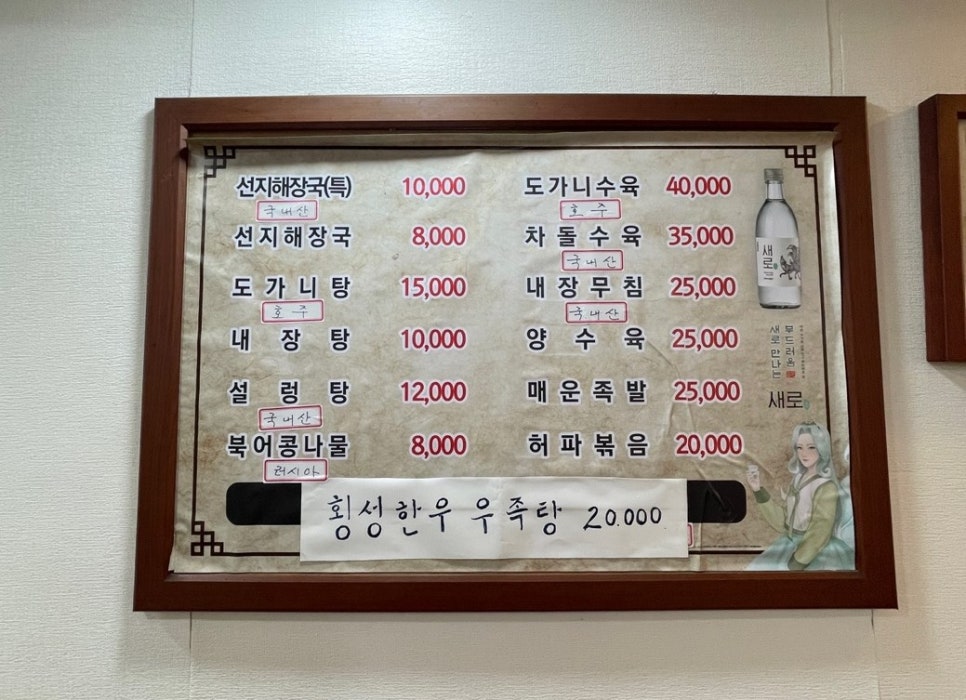 선지해장국(특) 10,000
국내산
선지해장국 8,000
도가니탕 15,000
호주
내장탕 10,000
설렁탕 12,000
국내산
북어콩나물 8,000
러시아
도가니수육 40,000
호주
차돌수육 35,000
국내산
내장무침 25,000
국내산
양수육 25,000
매운족발 25,000
허파볶음 20,000
횡성한우 우족탕 20.000
새로
부드러움
새로 만나는
새로